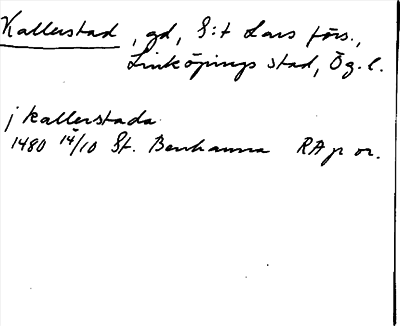 Kallerstad, gd, S:t Lars förs.,
Linköpings stad, Ög. l.
j kallerstada
1480 14/10 St. Benhamra RA p or.